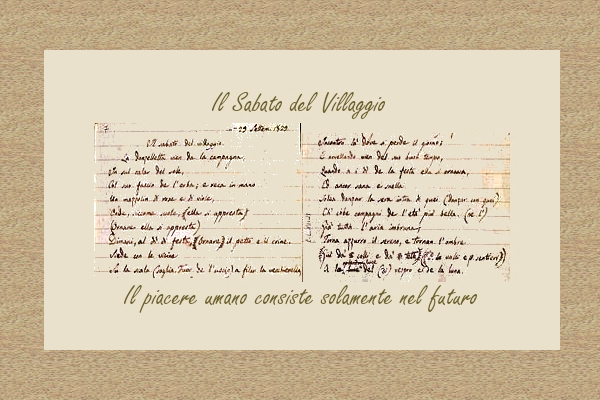 Il Sabato del Villaggio
7 29 Settem. 1829
Il sabato del villaggio.
La donzelletta vien da la campagna,
In sul calar del sole,
Col suo fascio de l'erba; e reca in mano
Un mazzolin di rose e di viole,
Onde, siccome suole, (ella si appresta)
(Ornare ella si appresta)
Dimani, al dì di festa, (Ornare) il petto e il crine.
Siede con le vicine
Su la scala (Soglia, de l'uscio) a filar la vecchierella,
Incontro là dove si perde il giorno;
E novellando vien del suo buon tempo,
Quando a i dì de la festa ella si ornava,
Ed ancor sana e snella
Solea danzar la sera intra di quei (danzar con quei)
Ch'ebbe compagni de l'età più bella.
Già tutta l'aria imbruna,
Torna azzurro il sereno, e tornan l'ombre
Giù da' colli e da' tetti
A la luce del vespro e de la luna.
Il piacere umano consiste solamente nel futuro